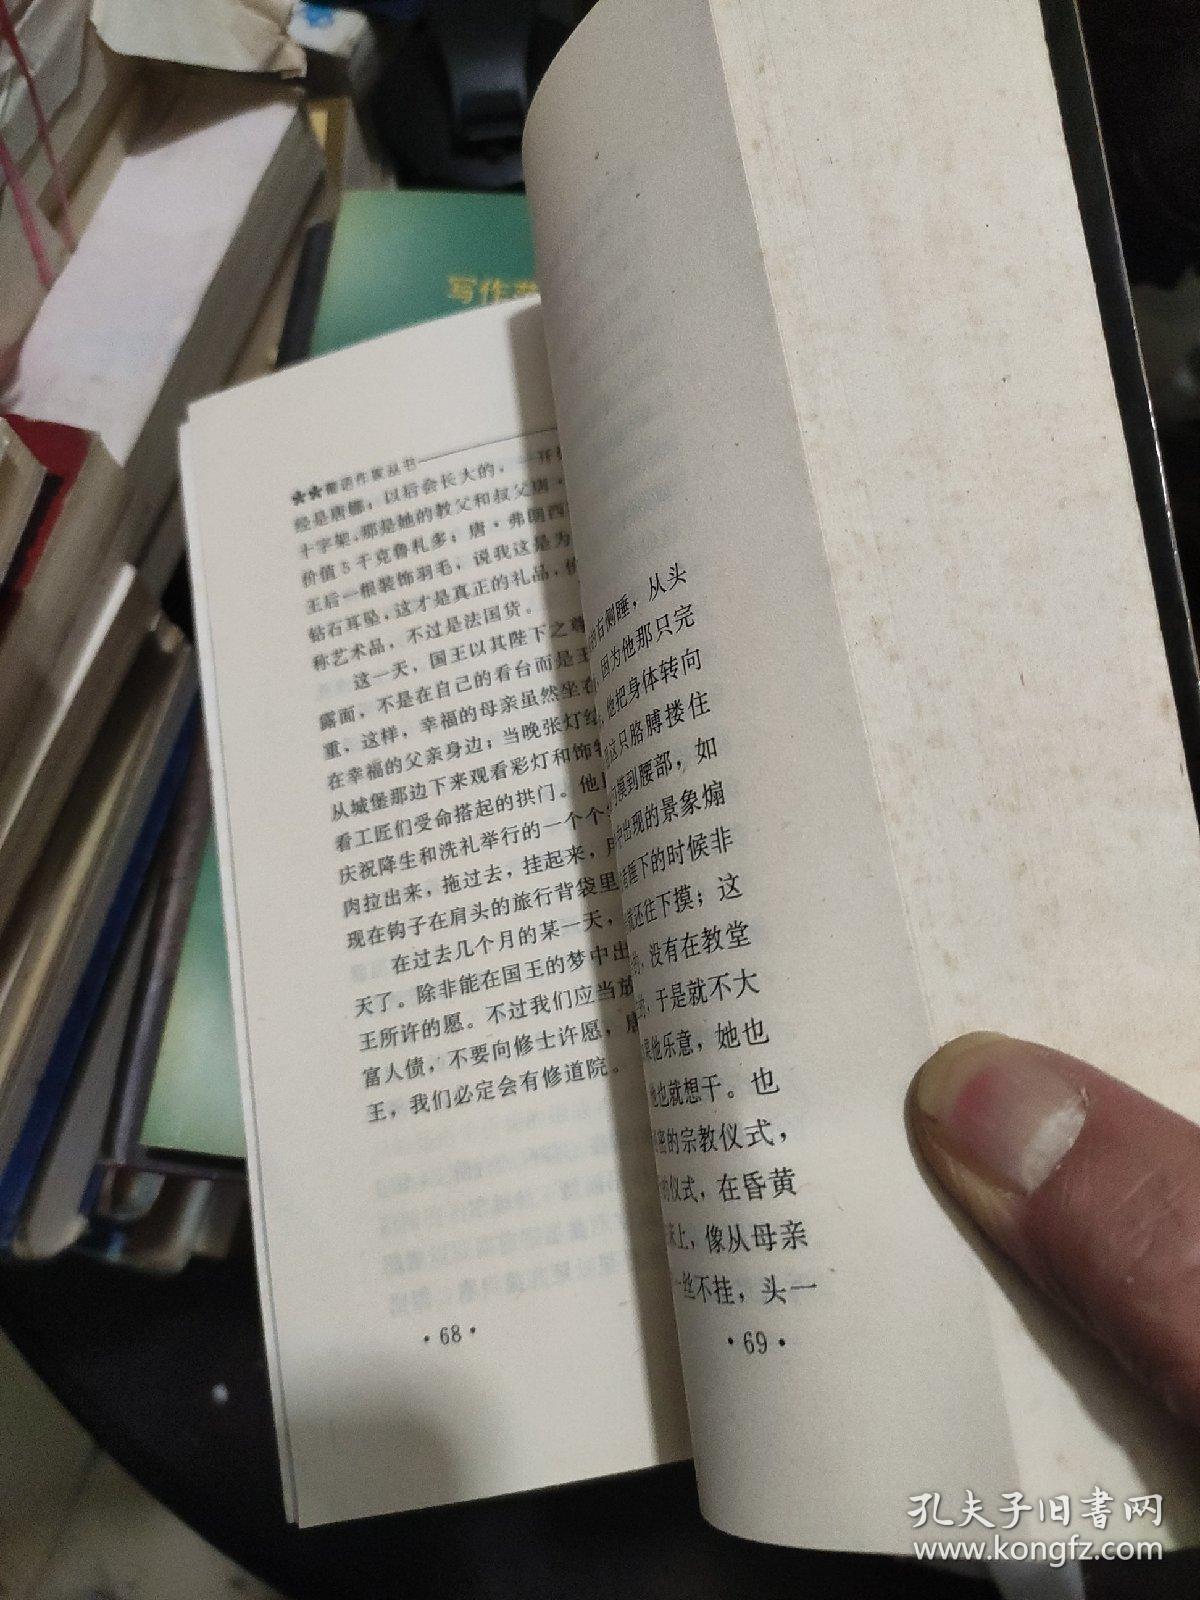 写作
★★葡语作家丛书
经是唐娜，以后会长大的，一开
十字架，那是她的教父和叔父唐·
价值5千克鲁札多；唐·弗朗西
王后一根装饰羽毛，说我这是为
钻石耳坠，这才是真正的礼品，
称艺术品，不过是法国货。
这一天，国王以其陛下之尊
露面，不是在自己的看台而是王
重，这样，幸福的母亲虽然坐在
在幸福的父亲身边；当晚张灯结
从城堡那边下来观看彩灯和饰
看工匠们受命搭起的拱门。他
庆祝降生和洗礼举行的一个个
肉拉出来，拖过去，挂起来，
现在钩子在肩头的旅行背袋里
在过去几个月的某一天，
天了。除非能在国王的梦中出
王所许的愿。不过我们应当放
富人债，不要向修士许愿，
王，我们必定会有修道院。
·68·
右侧睡，从头
因为他那只完
他把身体转向
这只胳膊搂住
摸到腰部，如
中出现的景象煽
睡下的时候非
还往下摸；这
的，没有在教堂
，于是就不大
果他乐意，她也
他也就想干。也
密的宗教仪式，
的仪式，在昏黄
床上，像从母亲
一丝不挂，头一
·69·
孔夫子旧书网
www.kongfz.com